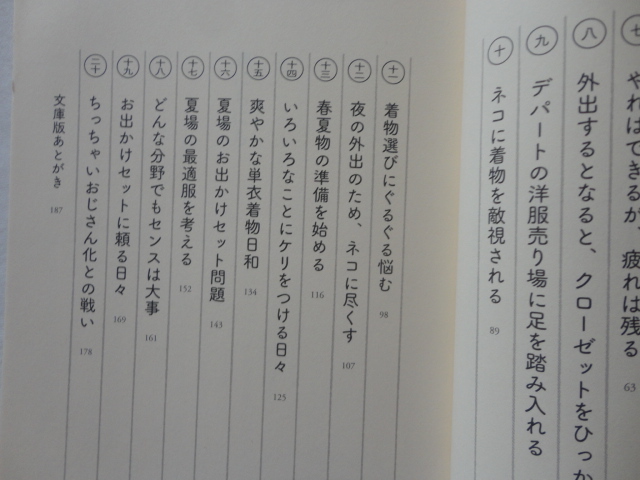 七 やればできるが、疲れは残る 63
八 外出するとなると、クローゼットをひっか
九 デパートの洋服売り場に足を踏み入れる
十 ネコに着物を敵視される 89
十一 着物選びにぐるぐる悩む 98
十二 夜の外出のため、ネコに尽くす 107
十三 春夏物の準備を始める 116
十四 いろいろなことにケリをつける日々 125
十五 爽やかな単衣着物日和 134
十六 夏場のお出かけセット問題 143
十七 夏場の最適服を考える 152
十八 どんな分野でもセンスは大事 161
十九 お出かけセットに頼る日々 169
二十 ちっちゃいおじさん化との戦い 178
文庫版あとがき 187